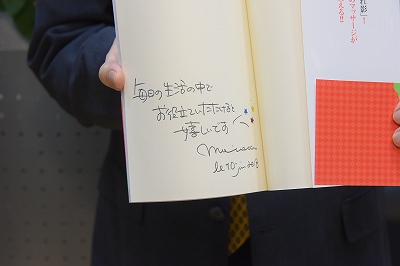 毎日の生活の中で
お役立ていただけると
嬉しいです
れ影」!
のマッサージが
える!!